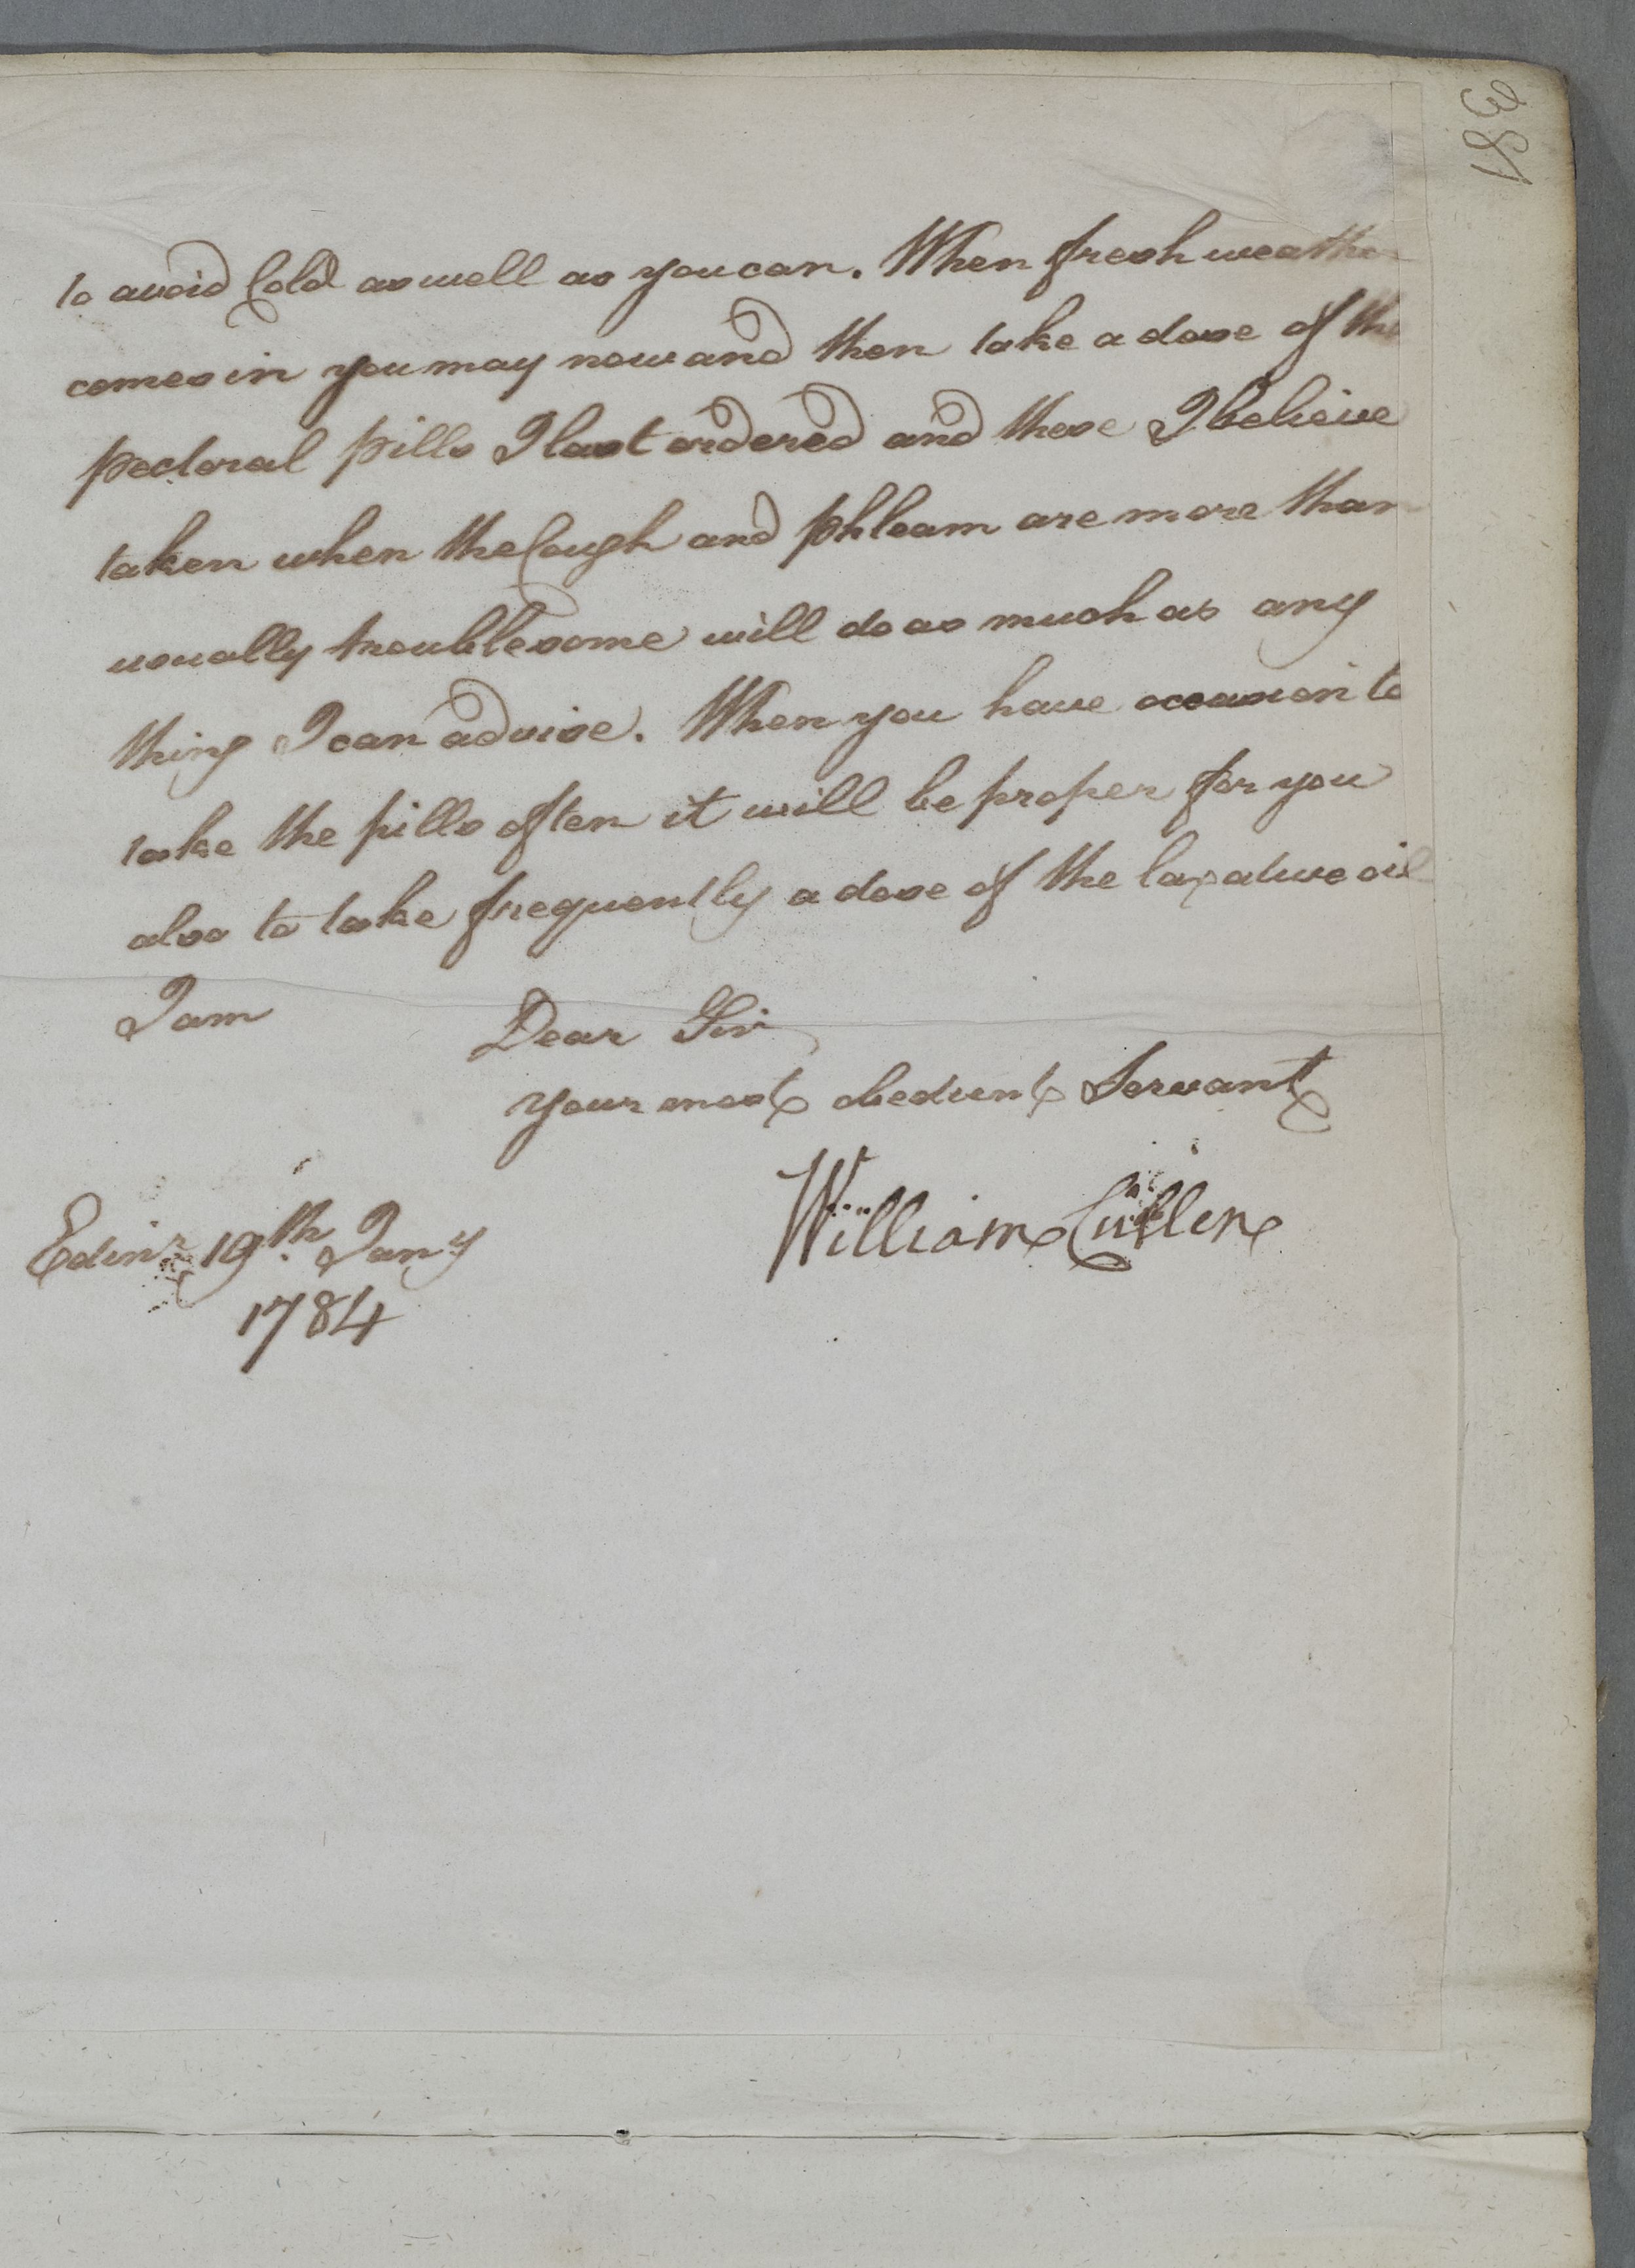 186
to avoid Cold as well as you can. When fresh weather
comes in you may now and then take a dose of the
pectoral pills I last ordered and these I believe
taken when the Cough and phleam are more than
usually troublesome will do as much as any
thing I can advise. When you have occasion to
take the pills often it will be proper for you
also to take frequently a dose of the laxative oil
I am Dear Sir
your most obedient Servant
William Cullen
Edinr 19th. Jany
1784